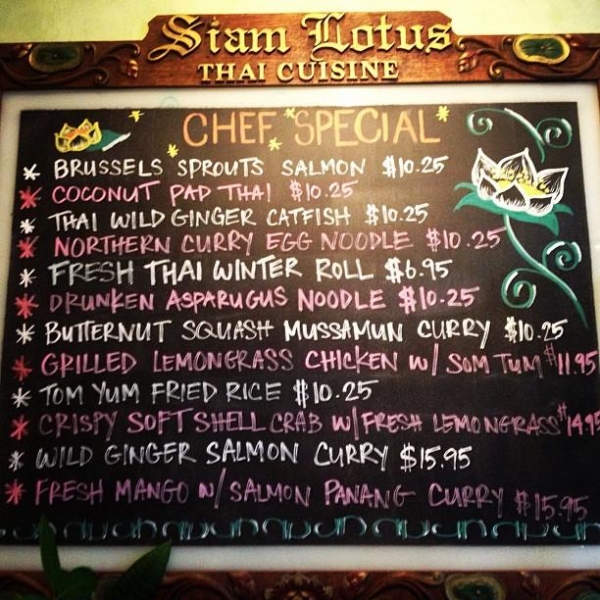 Siam Lotus
THAI CUISINE
CHEF SPECIAL
* BRUSSELS SPROUTS SALMON $10.25
* COCONUT PAD THAI $10.25
* THAI WILD GINGER CATFISH $10.25
* NORTHERN CURRY EGG NOODLE $10.25
* FRESH THAI WINTER ROLL $6.95
* DRUNKEN ASPARUGUS NOODLE $10.25
* BUTTERNUT SQUASH MUSSAMUN CURRY $10.25
* GRILLED LEMONGRASS CHICKEN W/ SOM TUM $11.95
* TOM YUM FRIED RICE $10.25
* CRISPY SOFT SHELL CRAB W/ FRESH LEMONGRASS $14.95
* WILD GINGER SALMON CURRY $15.95
* FRESH MANGO W/ SALMON PANANG CURRY $15.95